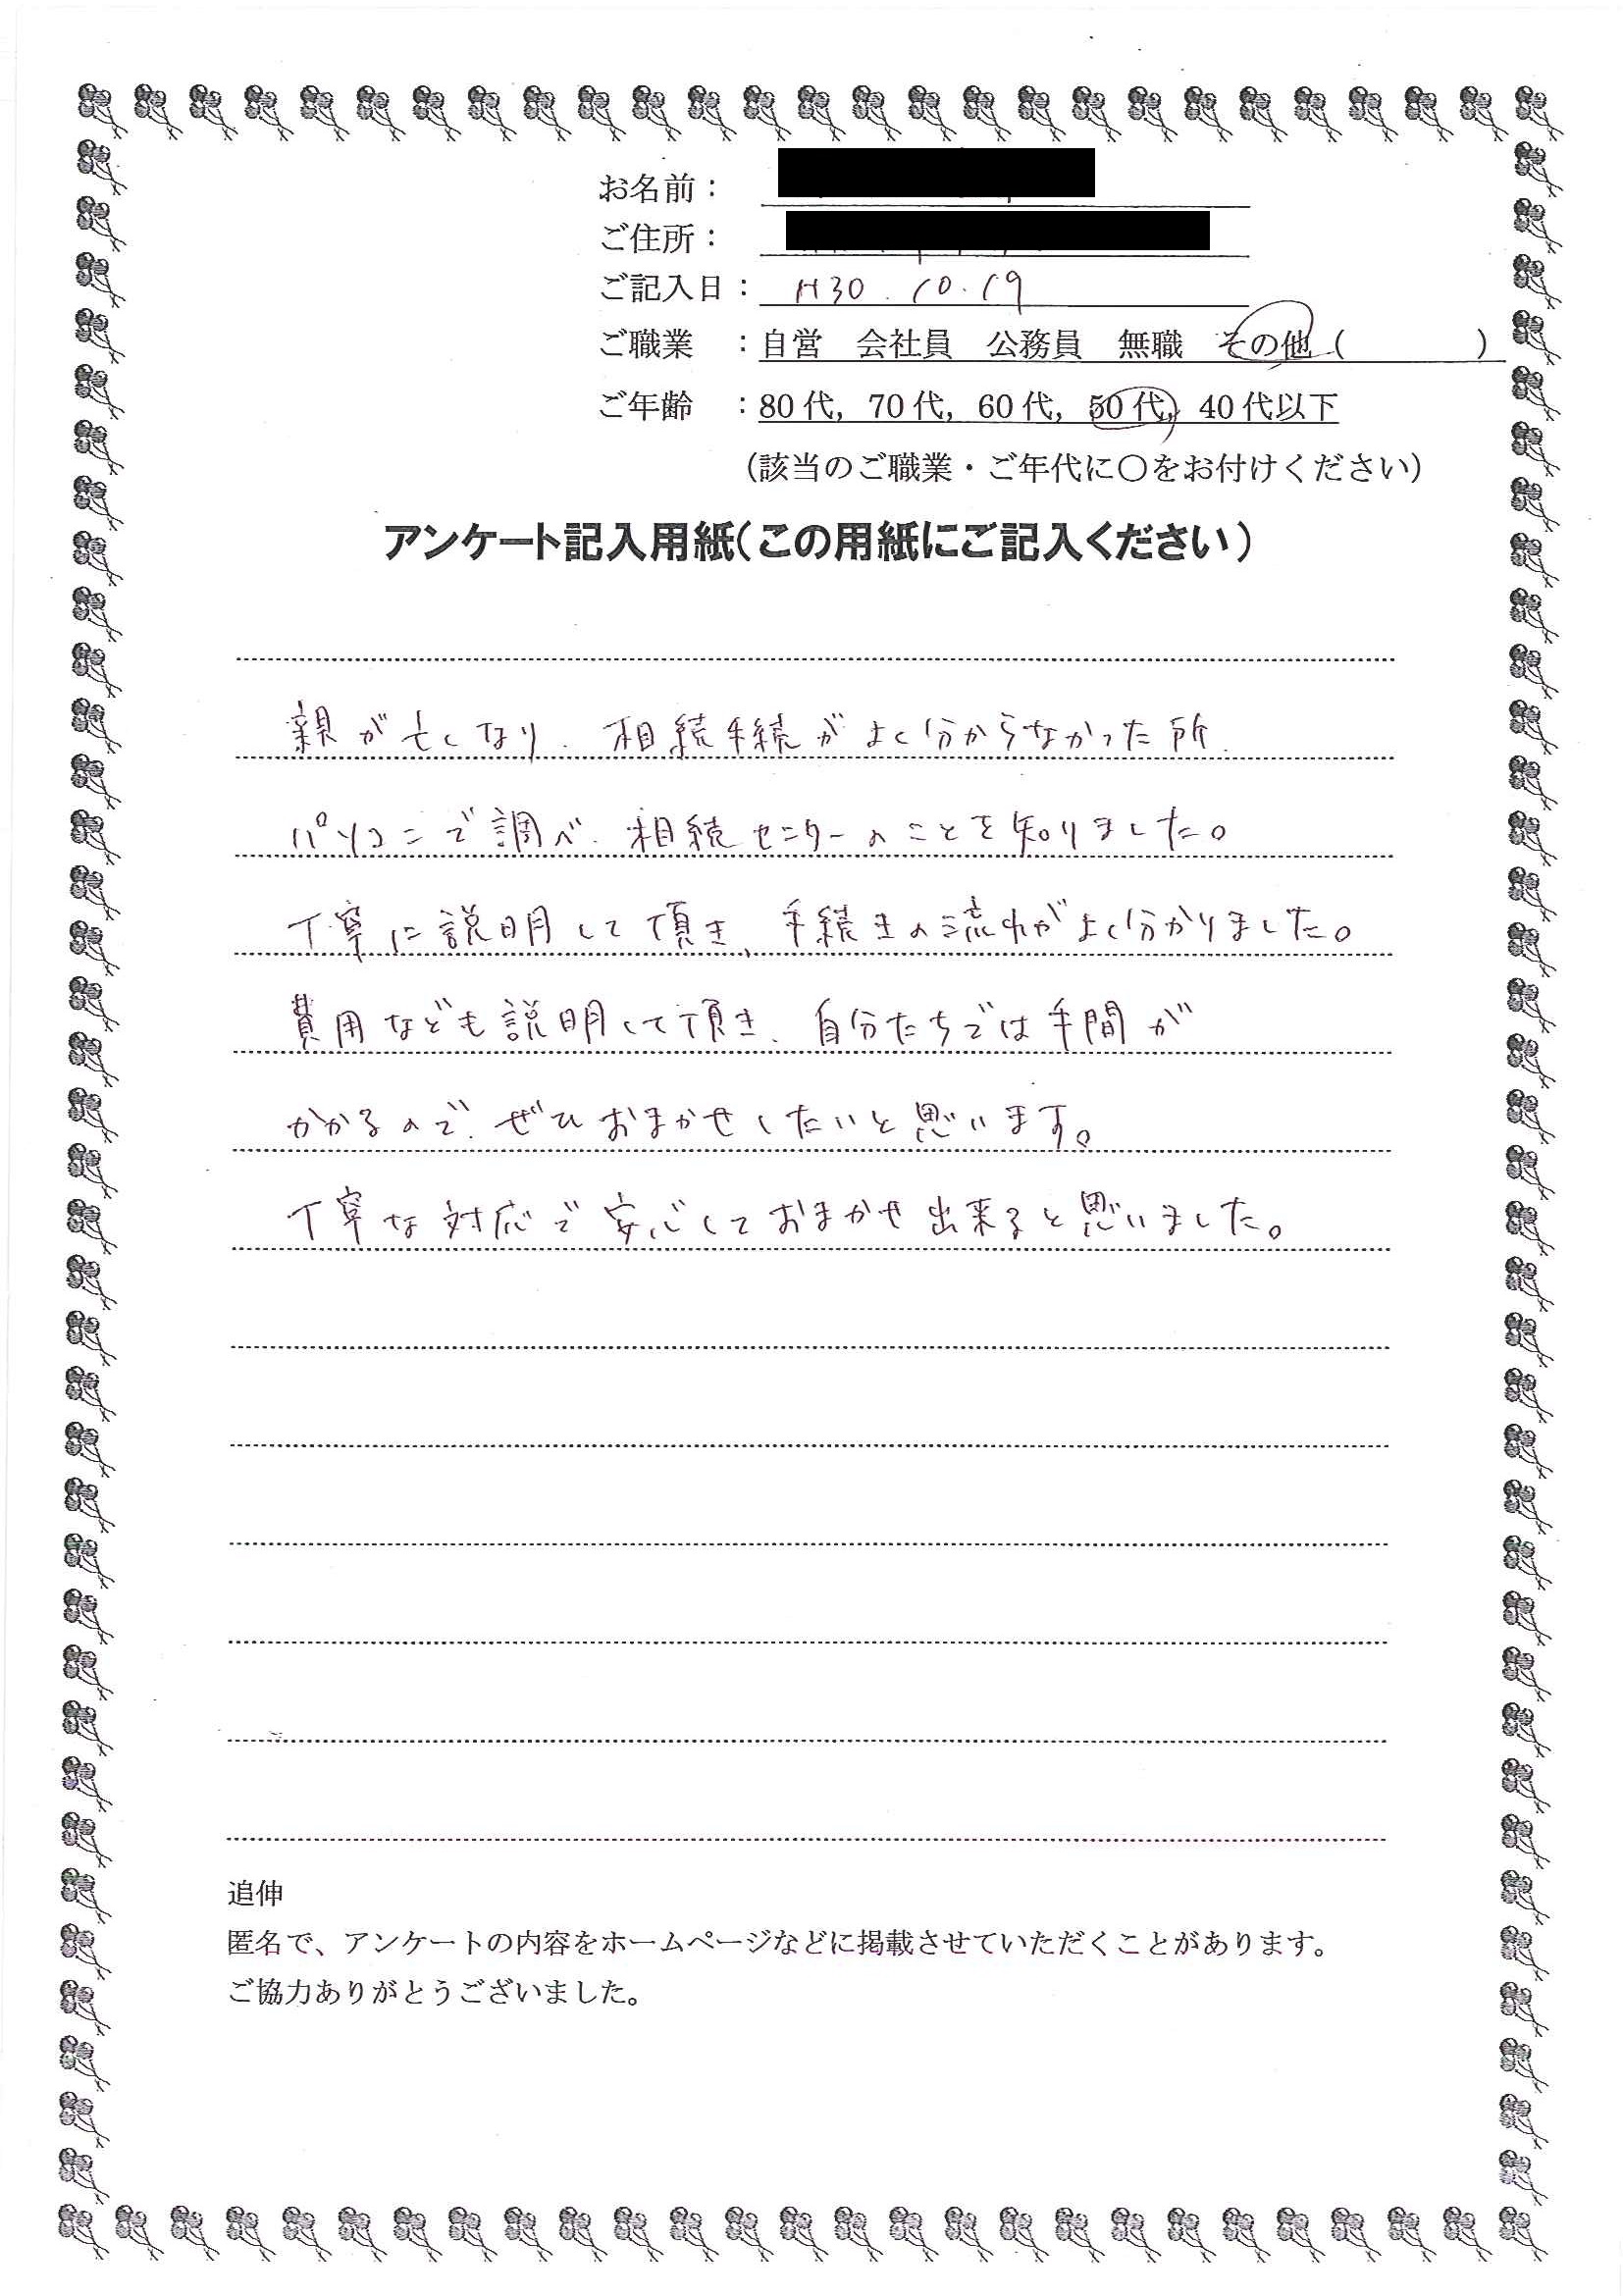 お名前：
ご住所：
ご記入日： H30.10.19
ご職業 ：自営 会社員 公務員 無職 その他（ ）
ご年齢 ：80代，70代，60代，50代，40代以下
（該当のご職業・ご年代に〇をお付けください）
アンケート記入用紙（この用紙にご記入ください）
親が亡くなり、相続手続がよく分からなかった所、
パソコンで調べ、相続センターのことを知りました。
丁寧に説明して頂き、手続きの流れがよく分かりました。
費用なども説明して頂き、自分たちでは手間が
かかるので、ぜひおまかせしたいと思います。
丁寧な対応で安心しておまかせ出来ると思いました。
追伸
匿名で、アンケートの内容をホームページなどに掲載させていただくことがあります。
ご協力ありがとうございました。